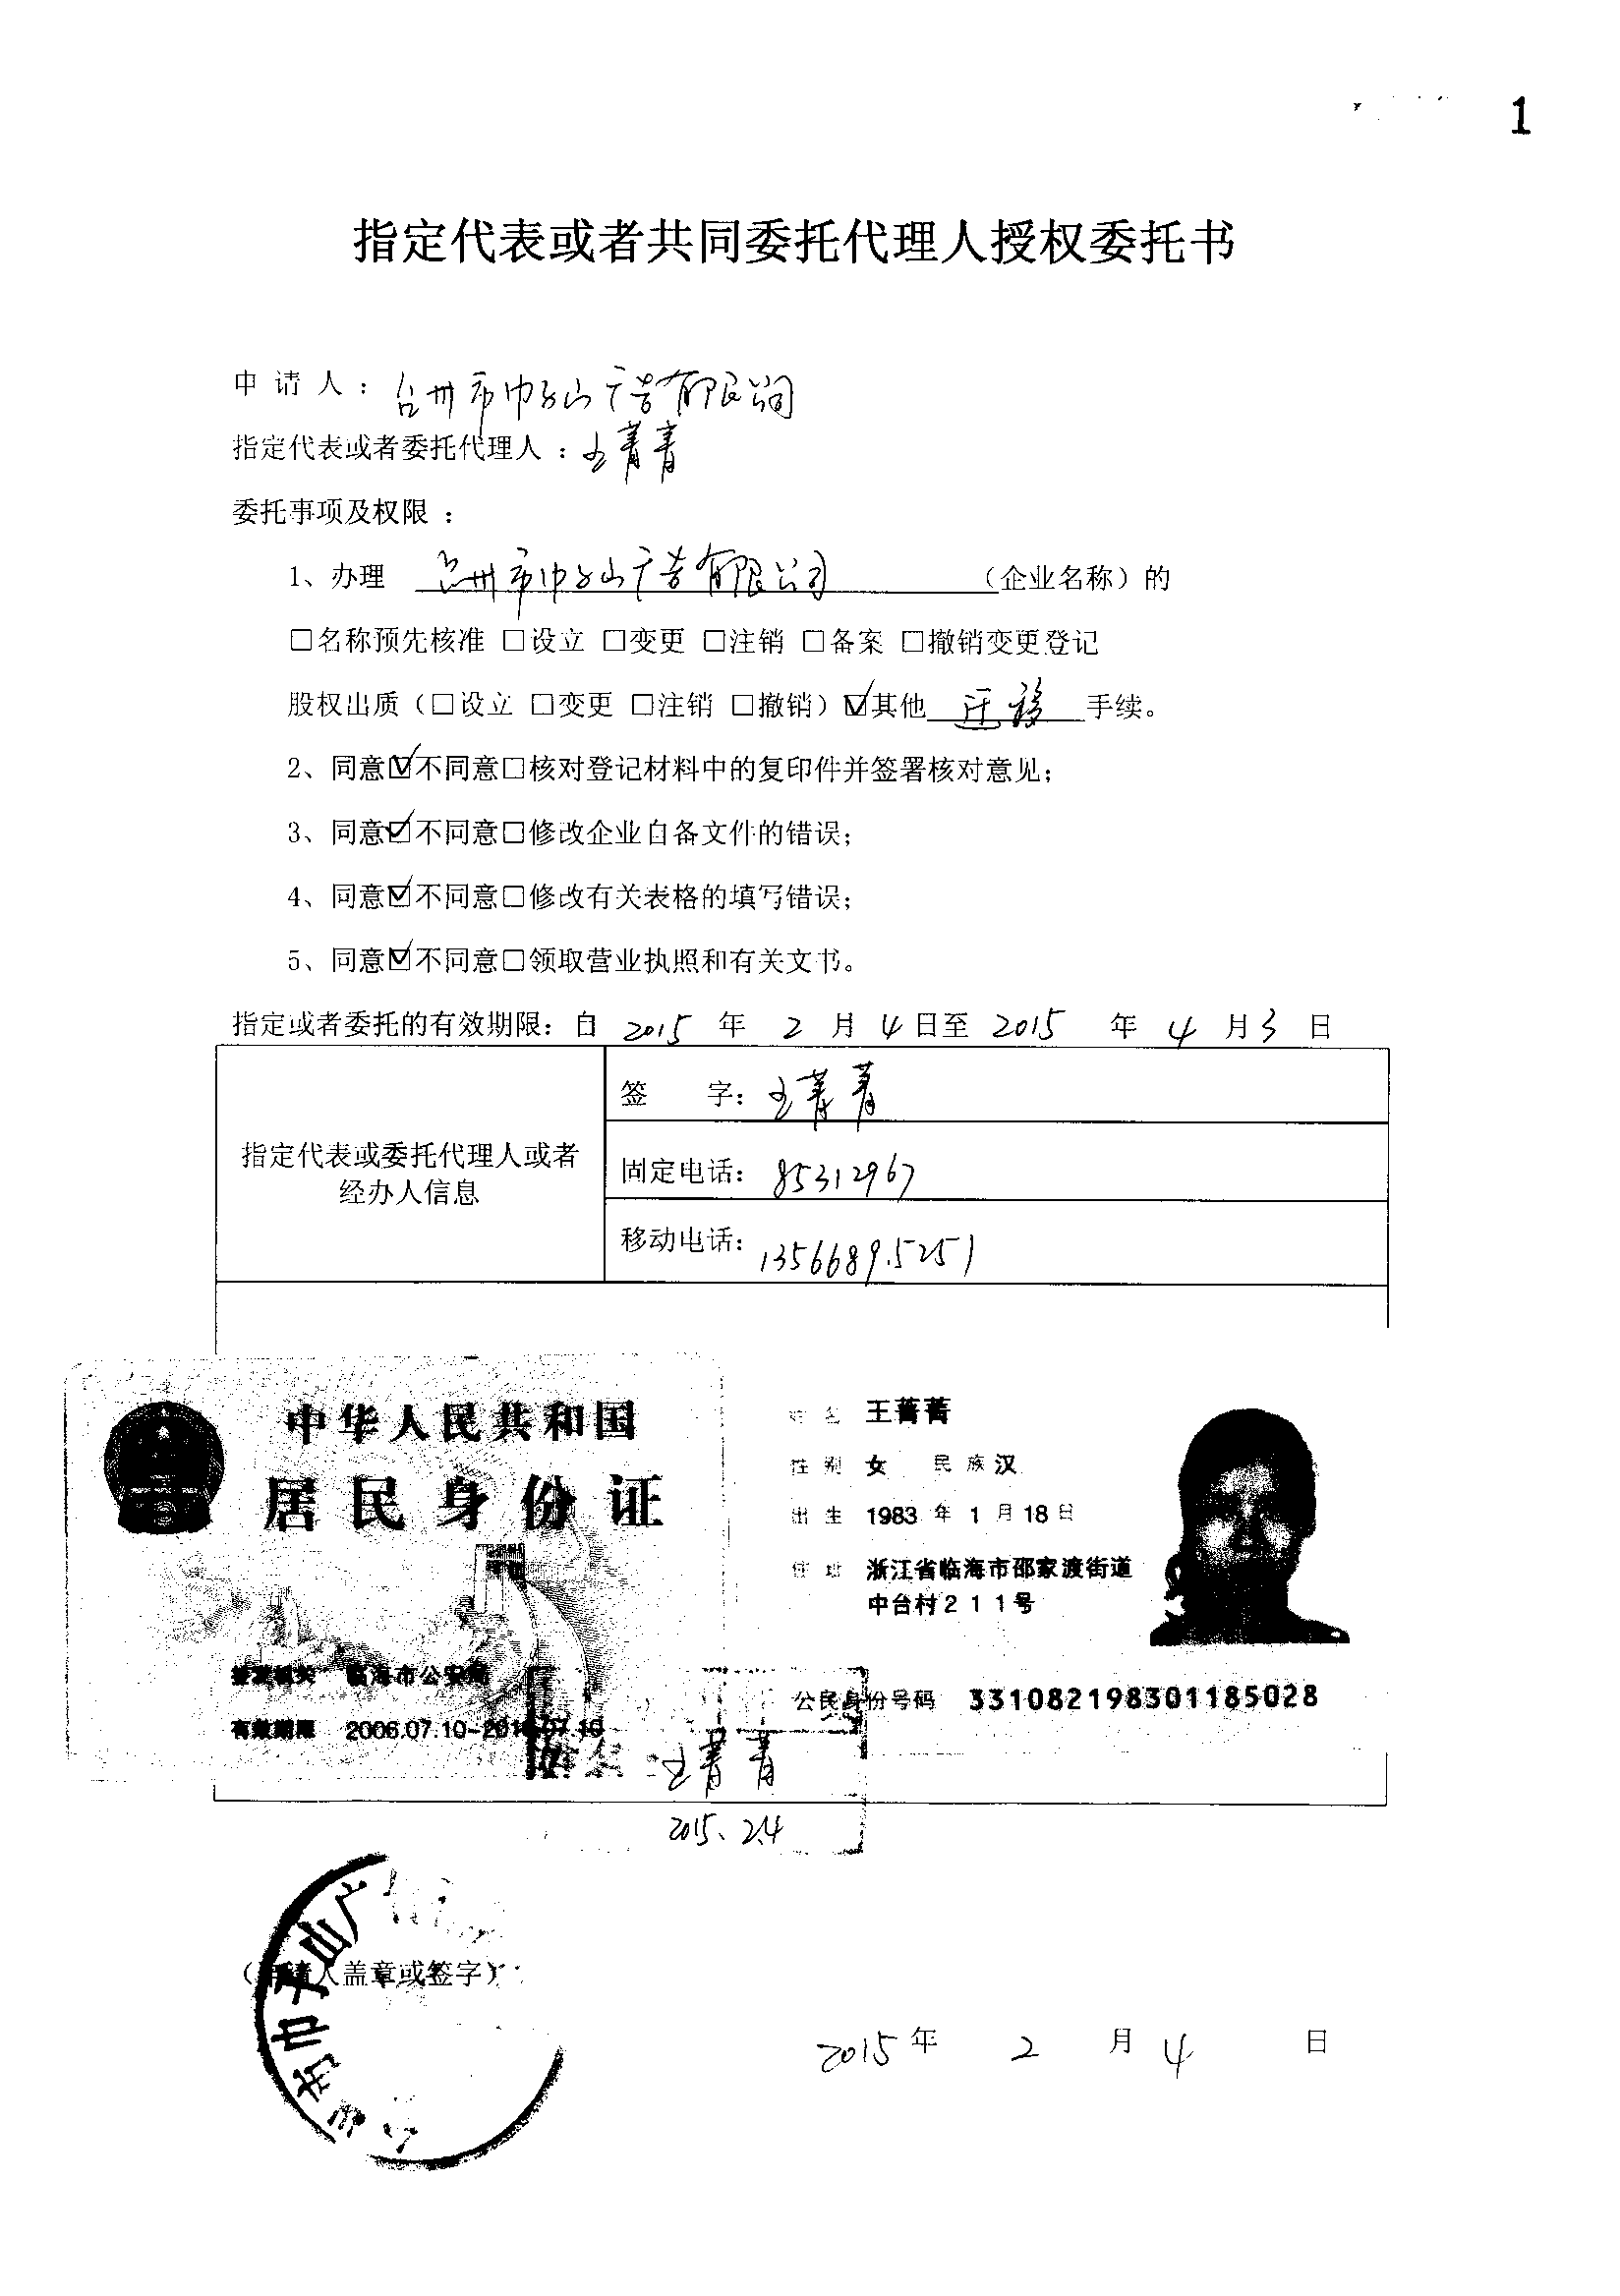 1
指定代表或者共同委托代理人授权委托书
申请人：台州市巾子山广告有限公司
指定代表或者委托代理人：王菁菁
委托事项及权限：
1、办理 台州市巾子山广告有限公司 （企业名称）的
□名称预先核准 □设立 □变更 □注销 □备案 □撤销变更登记
股权出质（□设立 □变更 □注销 □撤销）☑其他 迁移 手续。
2、同意☑不同意□核对登记材料中的复印件并签署核对意见；
3、同意☑不同意□修改企业自备文件的错误；
4、同意☑不同意□修改有关表格的填写错误；
5、同意☑不同意□领取营业执照和有关文书。
指定或者委托的有效期限：自 2015 年 2 月 4 日至 2015 年 4 月 3 日
签 字：王菁菁
指定代表或委托代理人或者
经办人信息
固定电话：85312967
移动电话：13566895251
中华人民共和国
居民身份证
签发机关 临海市公安局
有效期限 2006.07.10-2016.07.10
姓名 王菁菁
性别 女 民族 汉
出生 1983 年 1 月 18 日
住址 浙江省临海市邵家渡街道
中台村211号
公民身份号码 331082198301185028
王菁菁
2015.2.4
市巾子山广
（申请人盖章或签字）
2015 年 2 月 4 日